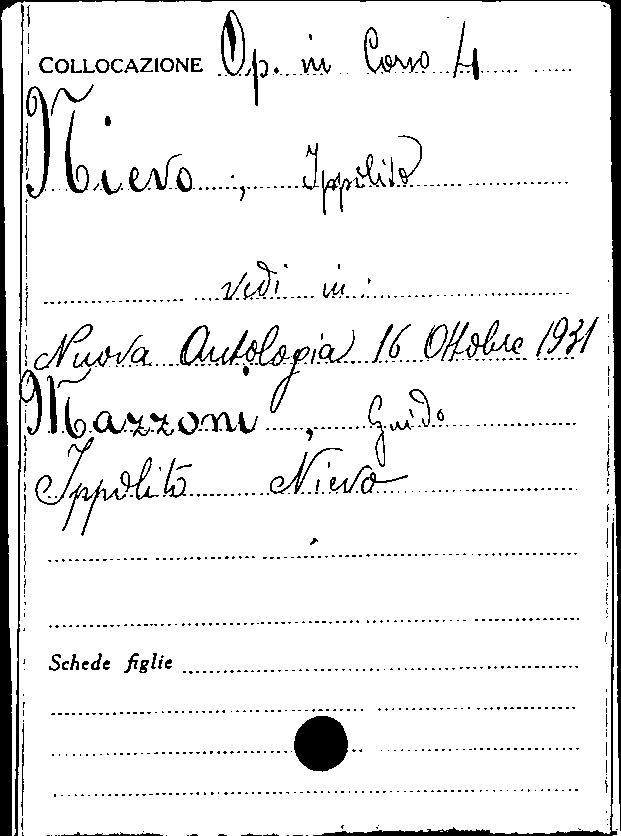 COLLOCAZIONE Op. in Corso 4
Nievo, Ippolito
vedi in:
Nuova Antologia 16 Ottobre 1931
Mazzoni, Guido
Ippolito Nievo
Schede figlie